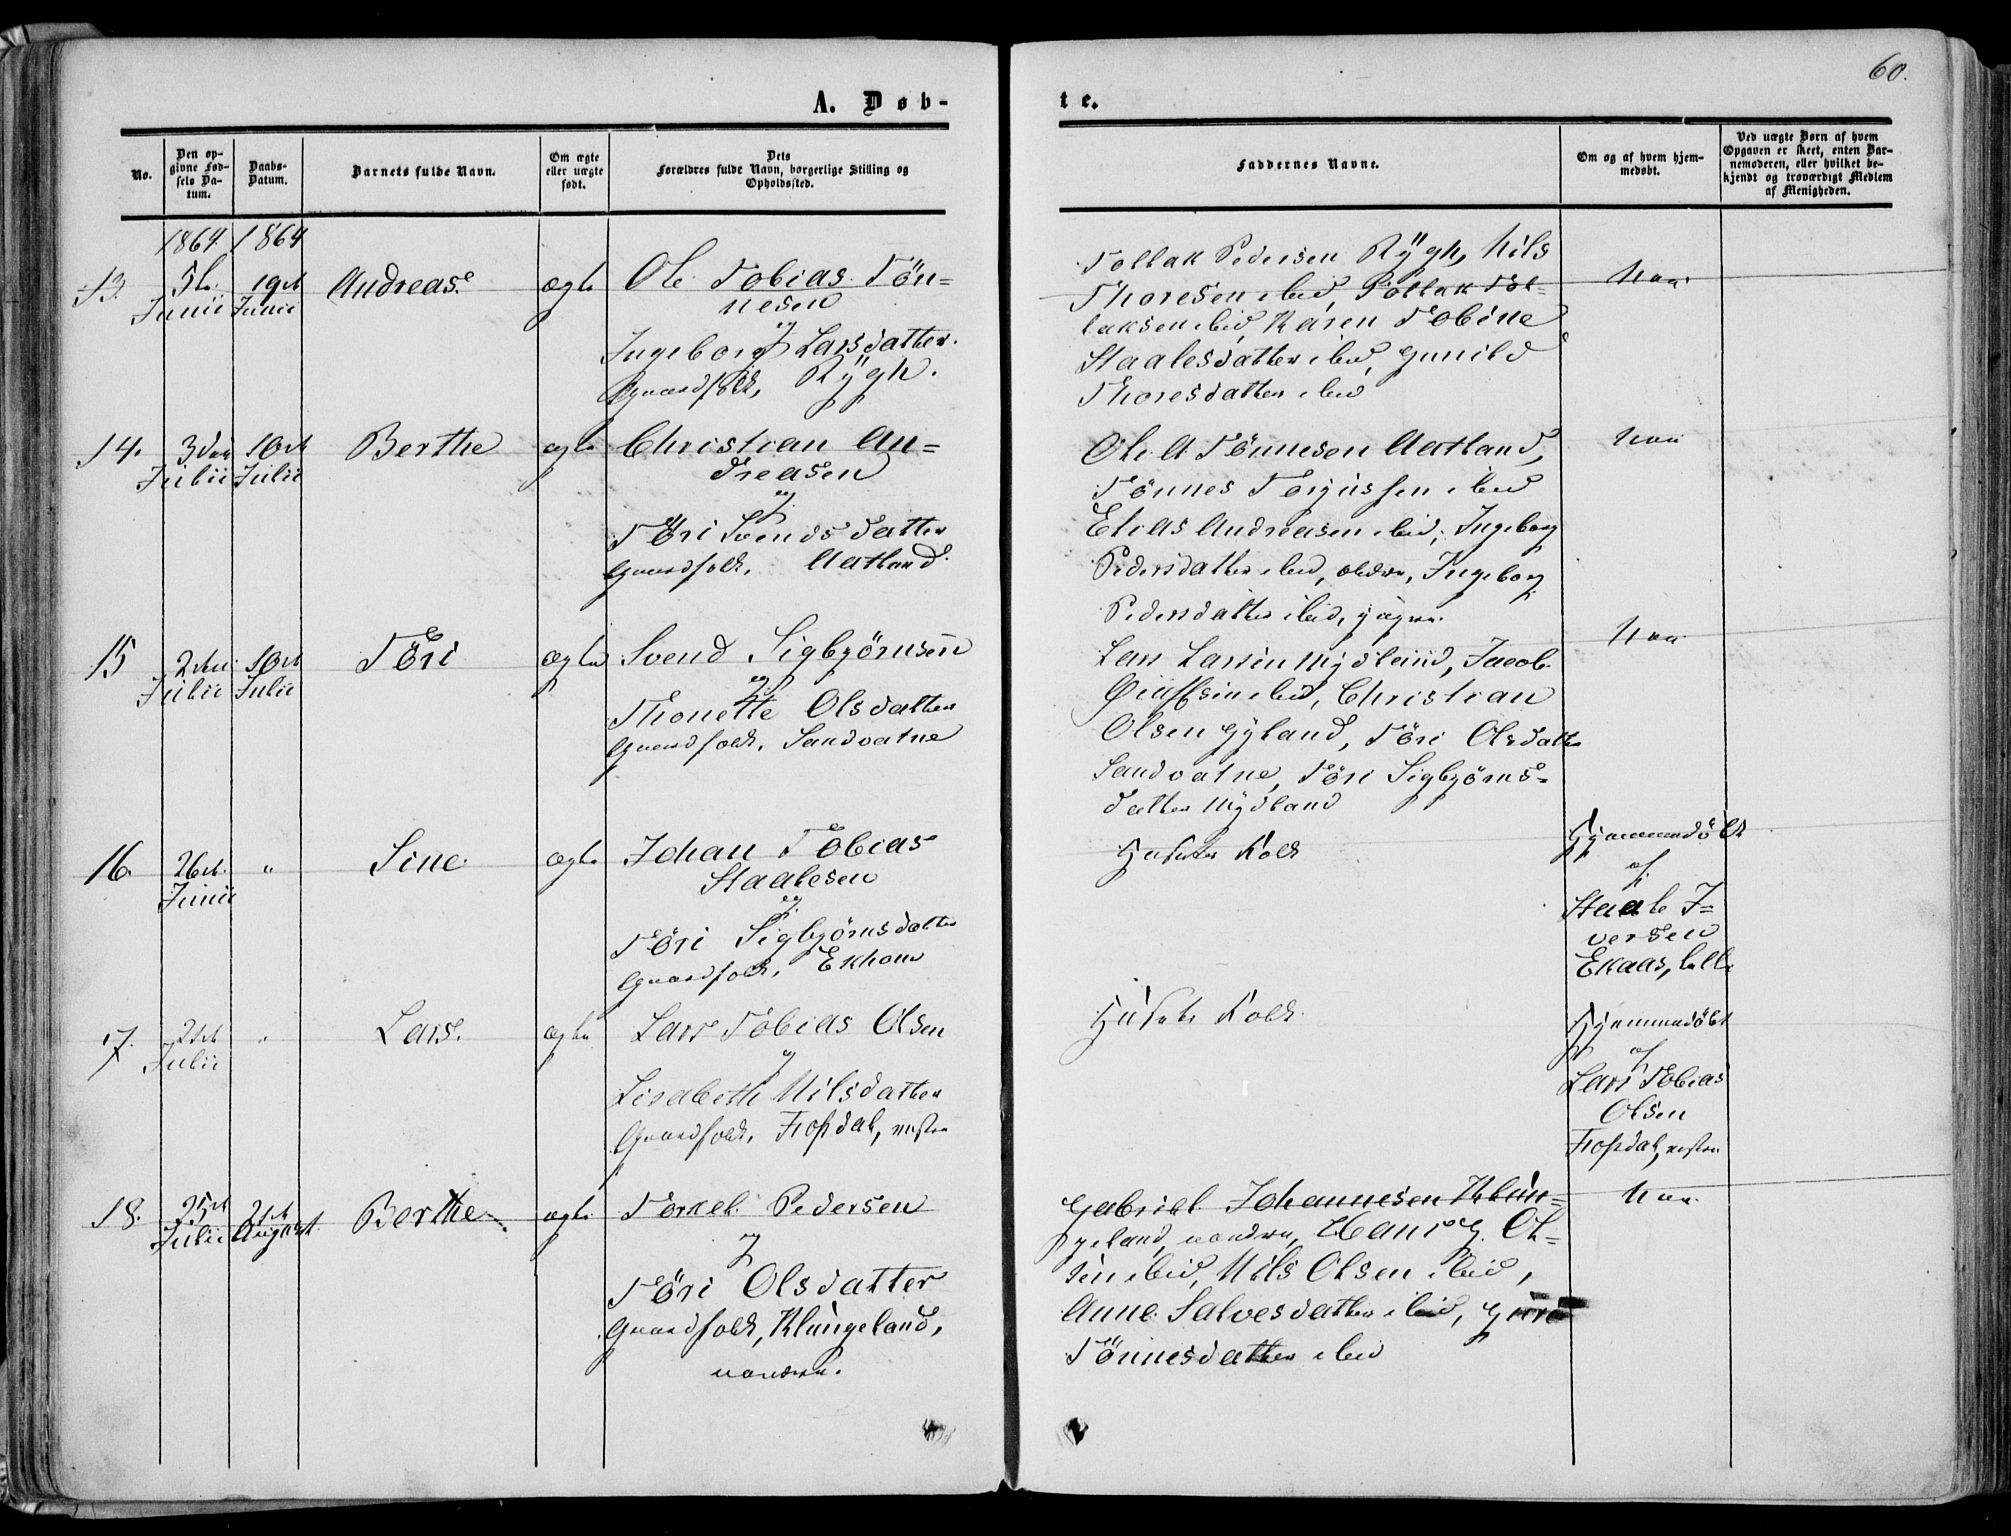 60.
A. Døb-
te.
No.
Den op-
givne Fød-
sels Da-
tum.
Daabs-
Datum.
Barnets fulde Navn.
Om ægte
eller uægte
født.
Dets
Forældres fulde Navn, borgerlige Stilling og
Opholdssted.
Faddernes Navne.
Om og af hvem hjem-
medøbt.
Ved uægte Børn af hvem
Opgaven er skeet, enten Bar-
nemoderen, eller hvilket be-
kjendt og troværdigt Medlem
af Menigheden.
1864. 1864
13. 5te Junii 19de Junii Andreas. ægte
Ole Tobias Tön=
nesen
og
Ingeborg Larsdatter.
Gaardfolk, Rÿgh.
Tollak Pedersen Rÿgh, Nils
Thoresen ibid, Tollak Tol=
laksen ibid, Karen Tobine
Staalesdatter ibid, Gunild
Thoresdatter ibid
Nei.
14. 3die Julii 10de Julii Berthe ægte
Christian An=
dreasen
og
Töri Svendsdatter
Gaardfolk, Aatland.
Ole A Tönnesen Aatland,
Tönnes Torjussen ibid
Elias Andreasen ibid, Ingeborg
Pedersdatter ibid, ældre, Ingeborg
Pedersdatter ibid, yngre.
Nei
15 2den Julii 10de Julii Töri ægte
Svend Sigbjörnsen
og
Thonette Olsdatter
Gaardfolk, Sandvatne
Lars Larsen Mydland, Jacob
ibid, Christian
Olsen Gyland, Töri Olsdatter
Sandvatne, Töri Sigbjörns=
datter Mydland
Nei
16. 26de Junii " Sine. ægte
Johan Tobias
Staalesen
og
Töri Sigbjörnsdatter
Gaardfolk, Ekhom
Husets Folk
Hjemmedöbt
af
Staale I=
versen
Ekaas, lille
17. 21de Julii " Lars. ægte
Lars Tobias Olsen
og
Lisabeth Nilsdatter
Gaardfolk, Frøsdal, vestre
Husets Folk
Hjemmedöbt
af
Lars Tobias
Olsen
Frøsdal, vestre
18. 25de Julii 21de August Berthe ægte
Torkel Pedersen
og
Töri Olsdatter
Gaardfolk, Klungeland,
nordre.
Gabriel Johannesen Klun=
geland, nordre, Hans G. Ol=
sen ibid, Nils Olsen ibid,
Anne Salvesdatter ibid,
Tönnesdatter ibid
Nei